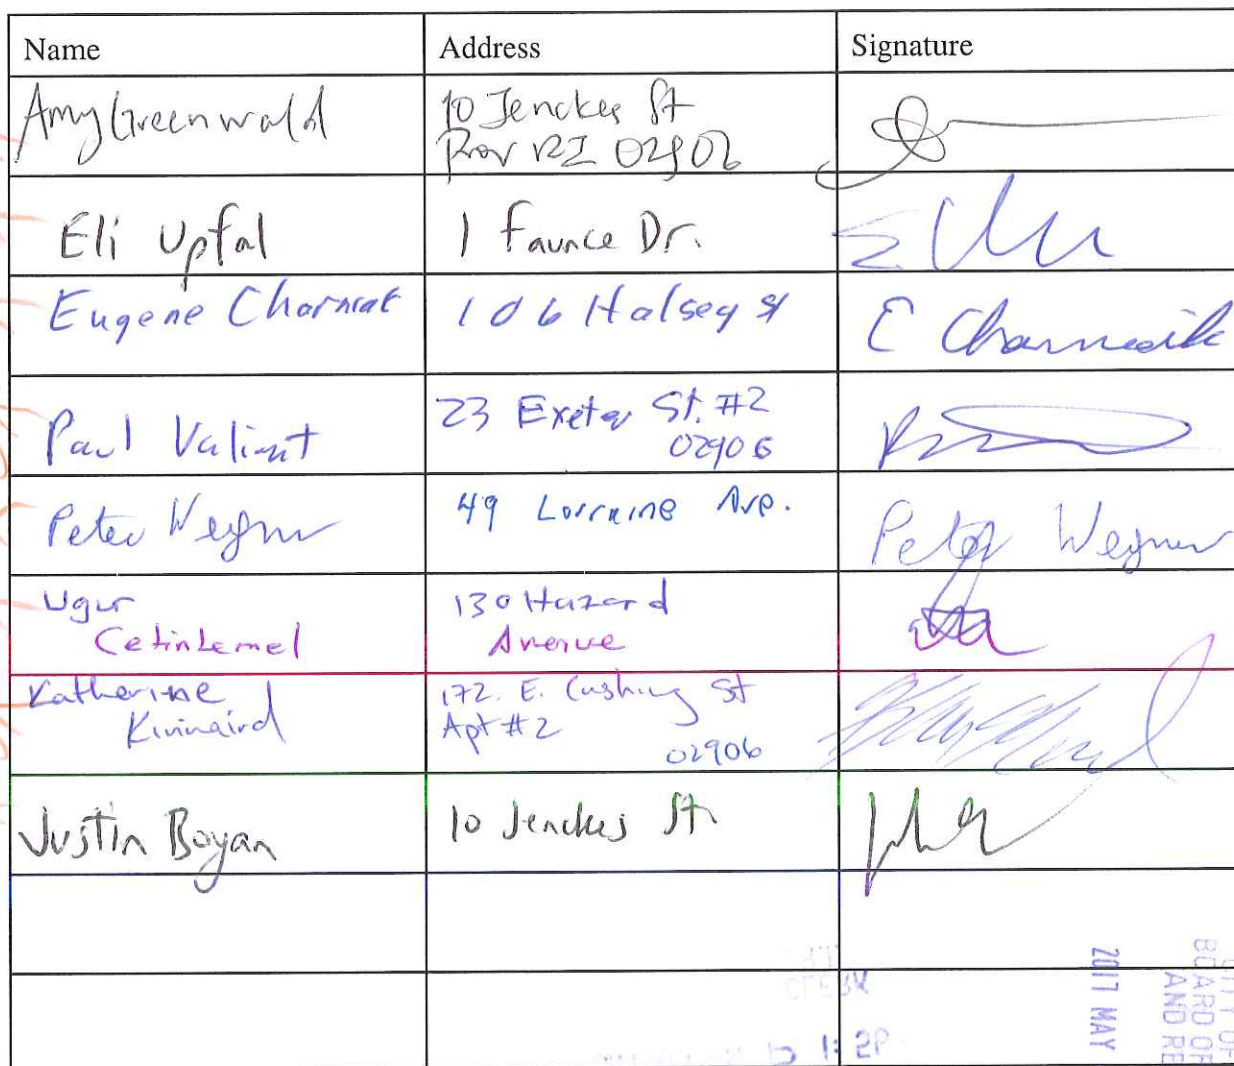 Name Address Signature
Amy Greenwald 10 Jenckes St
Prov RI 02906
Eli Upfal 1 Faunce Dr.
Eugene Charniak 106 Halsey St E Charniak
Paul Valiant 23 Exeter St. #2
02906
Peter Wegner 49 Lorraine Ave. Peter Wegner
Ugur 130 Hazard
Cetintemel Avenue
Katherine 172. E. Cushing St
Kinnaird Apt #2
02906
Justin Boyan 10 Jenckes St
CITY OF
BOARD OF
AND RE
2017 MAY
CLERK
1: 2P